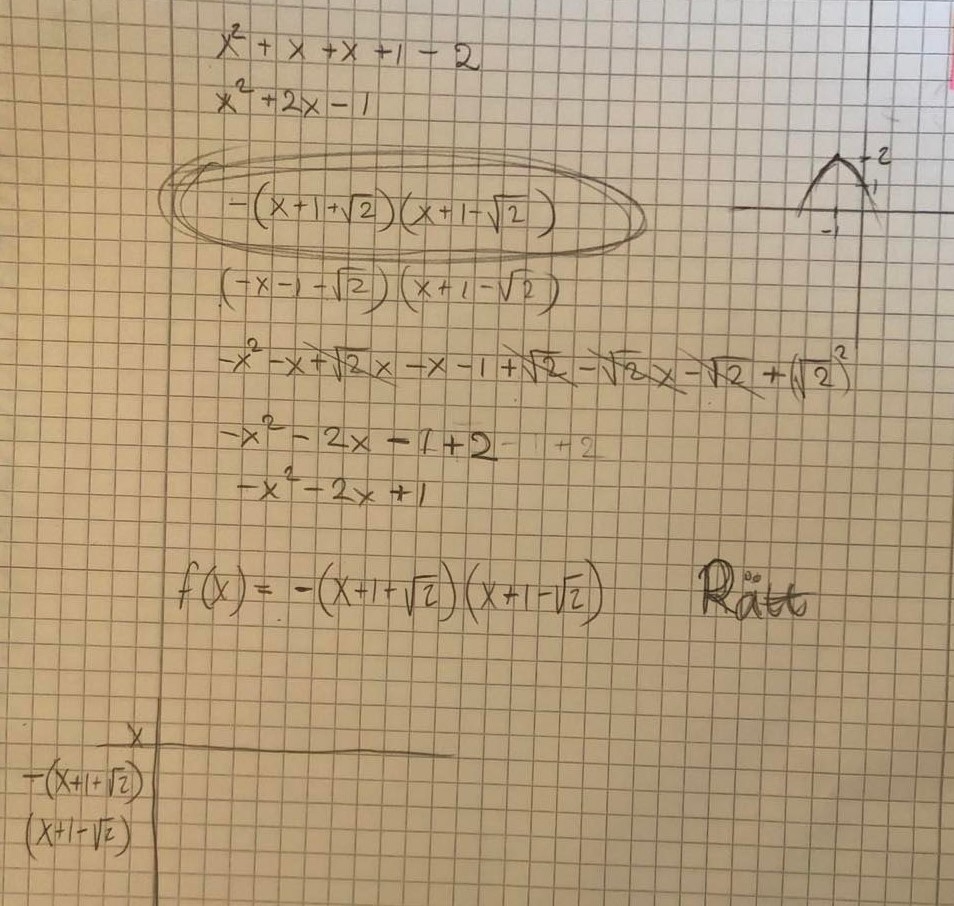 x² + x + x + 1 - 2
x² + 2x - 1
-(x+1+√2)(x+1-√2)
2
1
-1
(-x-1-√2)(x+1-√2)
-x² - x + √2x - x - 1 + √2 - √2x - √2 + (√2)²
-x² - 2x - 1 + 2 + 2
-x² - 2x + 1
f(x) = -(x+1+√2)(x+1-√2) Rätt
x
-(x+1+√2)
(x+1-√2)